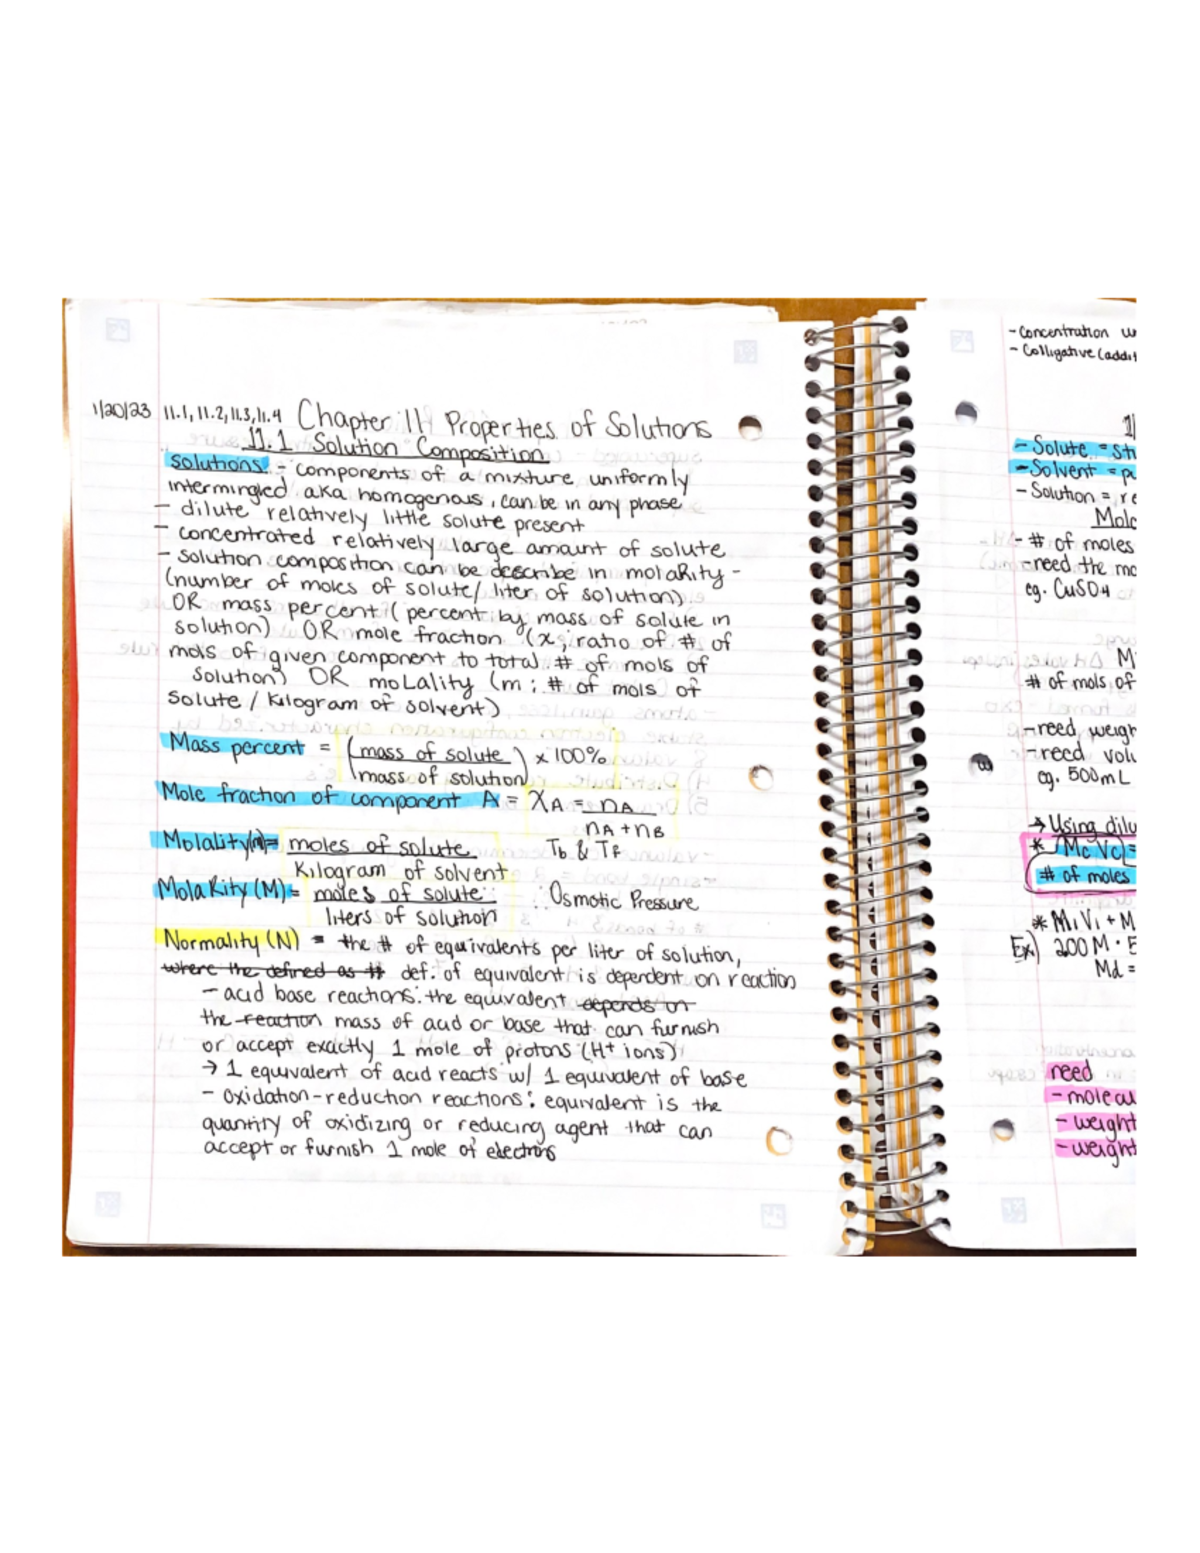 1/20/23 11.1, 11.2, 11.3, 11.4 Chapter 11 Properties of Solutions
11.1 Solution Composition
solutions - components of a mixture uniformly
intermingled aka homogenous, can be in any phase
- dilute relatively little solute present
- concentrated relatively large amount of solute
- solution composition can be describe in molaRity -
(number of moles of solute/ liter of solution)
OR mass percent (percent by mass of solute in
solution) OR mole fraction (x; ratio of # of
mols of given component to total # of mols of
solution) OR moLality (m: # of mols of
solute / kilogram of solvent)
Mass percent = (mass of solute / mass of solution) x 100%
Mole fraction of component A = χA = nA
nA + nB
Molality(m)= moles of solute Tb & Tf
Kilogram of solvent
MolaRity (M)= moles of solute ∴ Osmotic Pressure
liters of solution
Normality (N) = the # of equivalents per liter of solution,
where the defined as # def. of equivalent is dependent on reaction
- acid base reactions: the equivalent depends on
the reaction mass of acid or base that can furnish
or accept exactly 1 mole of protons (H+ ions)
→ 1 equivalent of acid reacts w/ 1 equivalent of base
- oxidation-reduction reactions: equivalent is the
quantity of oxidizing or reducing agent that can
accept or furnish 1 mole of electrons
- Concentration
- Colligative (addit
- Solute =
- Solvent =
- Solution =
- # of moles
- need the
eg. CuSO4
# of mols of
- need weigh
- need vol
eg. 500mL
→ Using dilu
* (McVc)=
# of moles
* M1V1 + M
Ex) 200 M ·
Md =
need
- molecu
- weight
- weight